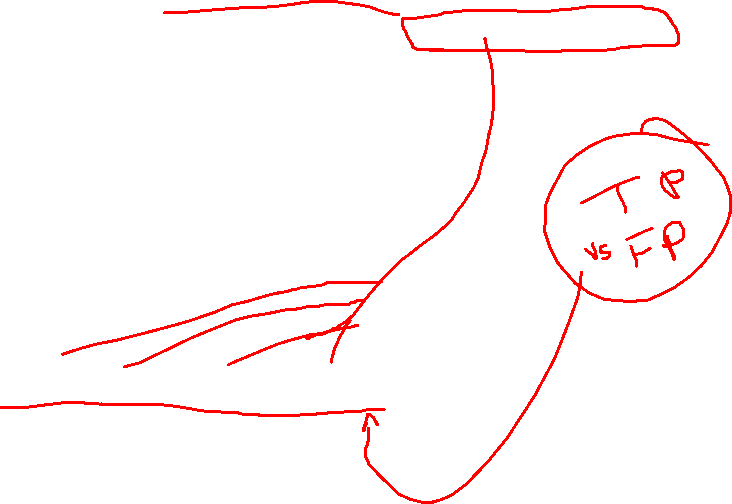 TP
vs FP